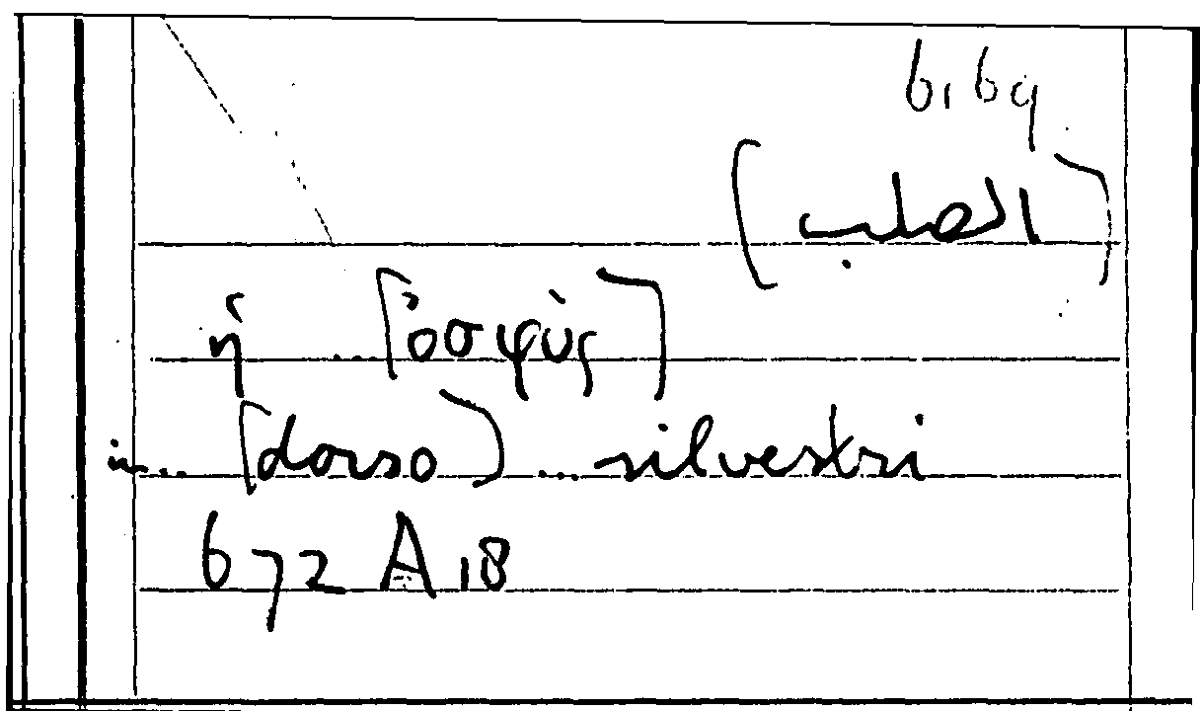 6,69
[الصلب]
ἡ ... [ὀσφὺς]
in... [dorso] ... silvestri
672 A 18